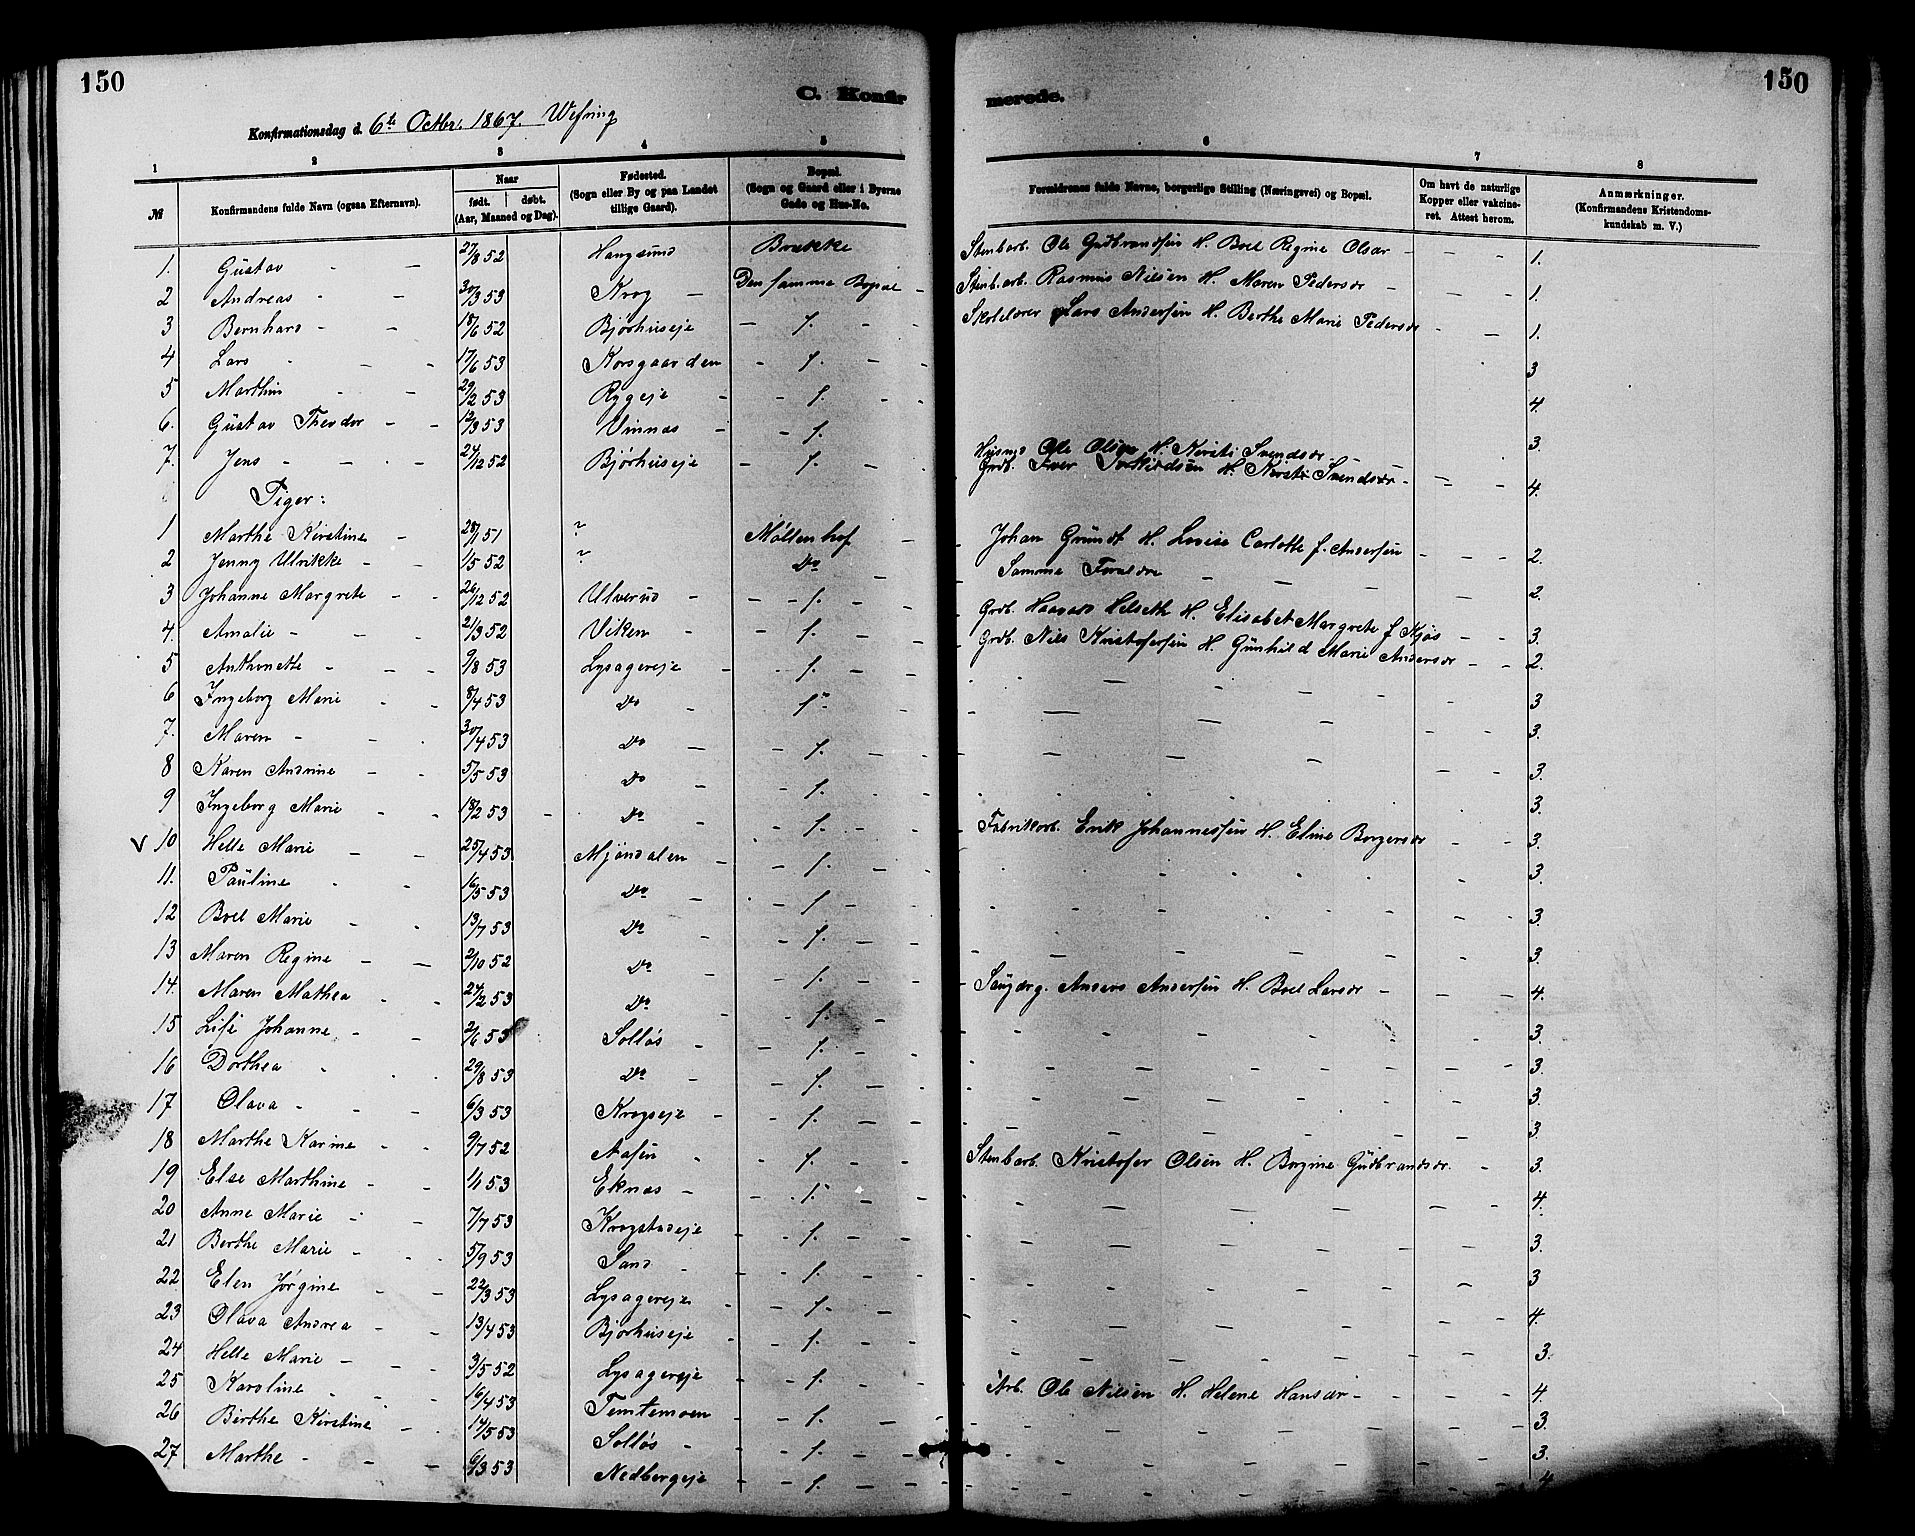 150
C. Konfir
Konfirmationsdag d. 6te Octbr. 1867. Wefring
1 2 3 4 5
№ Konfirmandens fulde Navn (ogsaa Efternavn). Naar født. døbt. (Aar, Maaned og Dag). Fødested. (Sogn eller By og paa Landet tillige Gaard). Bopæl. (Sogn og Gaard eller i Byerne Gade og Hus-No.
1. Gustav - - 27/8 52 Haugsund Brække
2 Andreas - - 30/3 53 Krog - Den samme Bopæl -
3 Bernhard - - 18/6 52 Bjørhuseje - 1. - -
4 Lars - - - 17/6 53 Korsgaarden - 1. - -
5 Marthin - - 29/2 53 Ryggeje - - 1. - -
6. Gustav Theodor - - 12/3 53 Vinnæs - - 1.
7. Jens - - - 24/12 52 Bjørhuseje - - 1. -
Piger:
1 Marthe Kirstine - 28/1 51 ? Møllenhof -
2 Jenny Ulrikke - - 1/5 52 ? Do -
3 Johanne Margrete - - 26/12 52 Ulverud - - 1. - -
4. Amalie - - - 21/3 52 Viken - - 1. - -
5 Anthonette - - - 9/8 53 Lysagereje - - 1. - -
6 Ingeborg Marie - - 8/4 53 Do - 1. -
7. Maren - - - 30/4 53 Do - - 1. - -
8 Karen Andrine - - 5/5 53 Do - - 1. - -
9 Ingeborg Marie - - 18/2 53 - Do - - 1. - -
V 10 Helle Marie - - 25/4 53 Mjøndalen - - 1. - -
11. Pauline - - 16/5 53 Do - - 1. - -
12 Boel Marie - - 13/7 53 Do - - 1. - -
13 Maren Regine - - 2/10 52 Do - 1. - -
14. Maren Mathea - - 24/2 53 Do - - 1. -
15 Lise Johanne - - 2/6 53 Solløs - - 1. - -
16 Dorthea - - - 29/8 53 Do - - 1. - -
17 Olava - - - 6/3 53 Krogseje - - 1. - -
18 Marthe Karine - - 9/7 52 Aasen - - 1. - -
19 Else Marthine - - 1/1 53 Eknæs - - 1. - -
20 Anne Marie - - 7/7 53 Krogstadeje - 1. - -
21 Berthe Marie - - - 5/9 53 Sand - - 1. - -
22 Elen Jørgine - - 22/3 53 Lysagereje - - 1. - -
23 Olava Andrea - - 13/4 53 Bjørhuseje - - 1. - -
24 Helle Marie - - 3/5 52 Lysagereje - 1. - -
25 Karoline - - 16/4 53 Temtemoen - - 1. - -
26 Birthe Kirstine - - 14/5 53 Solløs - - 1. - -
27 Marthe - - - 6/3 53 Nedbergeje - - 1. - -
150
merede.
6 7 8
Forældrenes fulde Navne, borgerlige Stilling (Næringsvei) og Bopæl. Om havt de naturlige Kopper eller vakcineret. Attest herom. Anmærkninger. (Konfirmandens Kristendomskundskab m. V.)
Stenbarb. Ole Gudbrandsen H. Boel Regine Olsdr - - - 1.
Stenbarb. Rasmus Nilsen H. Maren Pedersdr - - - 1.
Skolelærer Lars Andersen H. Berthe Marie Pedersdr - - 1.
3
4.
3.
Husmd Ole Olsen H. Kirsti Svendsdr - -
Grdb. Iver H. Kirsti Svendsdr - - - 4.
Johan Gründt H. Lovise Carlotte f. Andersen - - - 2.
Samme Forældre - - - 2.
Grdb. Haavard Helseth H. Elisabet Margrete f Kjøs - - 3.
Grdb. Nils Kristofersen H. Gunhild Marie Andersdr - - 2.
3
3.
3.
3.
Fabrikarb. Erik Johannessen H. Eline Borgersdr - - 3.
3.
3.
3.
Anders Andersen H. Boel Larsdr - - - 4.
3.
3.
3.
3.
Stenbarb. Kristofer Olsen H. Borgine Gudbrandsdr. - 3.
4.
3.
3
4.
3.
Arb. Ole Nilsen H. Helene Hansdr - - - 4.
3.
3.
4